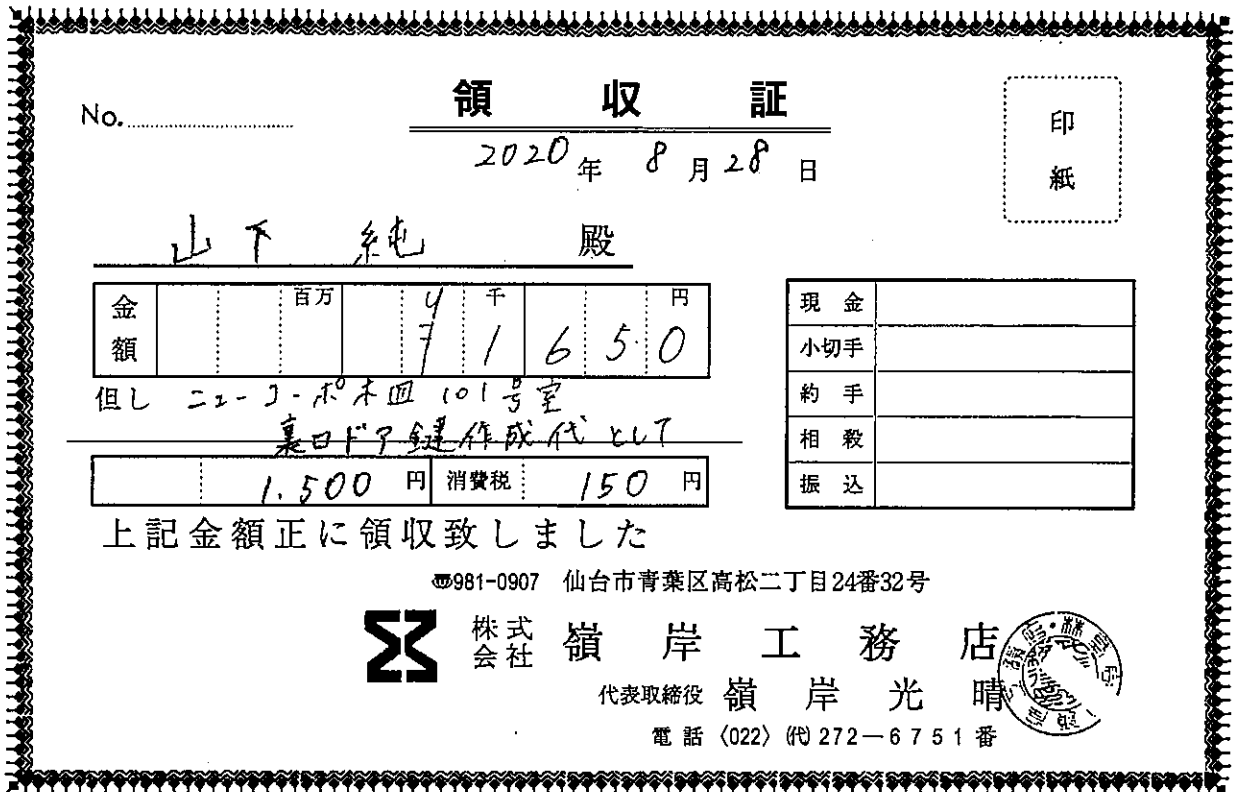 No.
領収証
印紙
2020年 8月28日
山下 純 殿
金額 百万 千 円
1650
現金
小切手
約手
相殺
振込
但し ニューコーポ木皿 101号室
裏口ドア鍵作成代として
1.500円 消費税 150円
上記金額正に領収致しました
〠981-0907 仙台市青葉区高松二丁目24番32号
株式会社 嶺岸工務店
代表取締役 嶺岸光晴
電話〈022〉(代)272-6751番